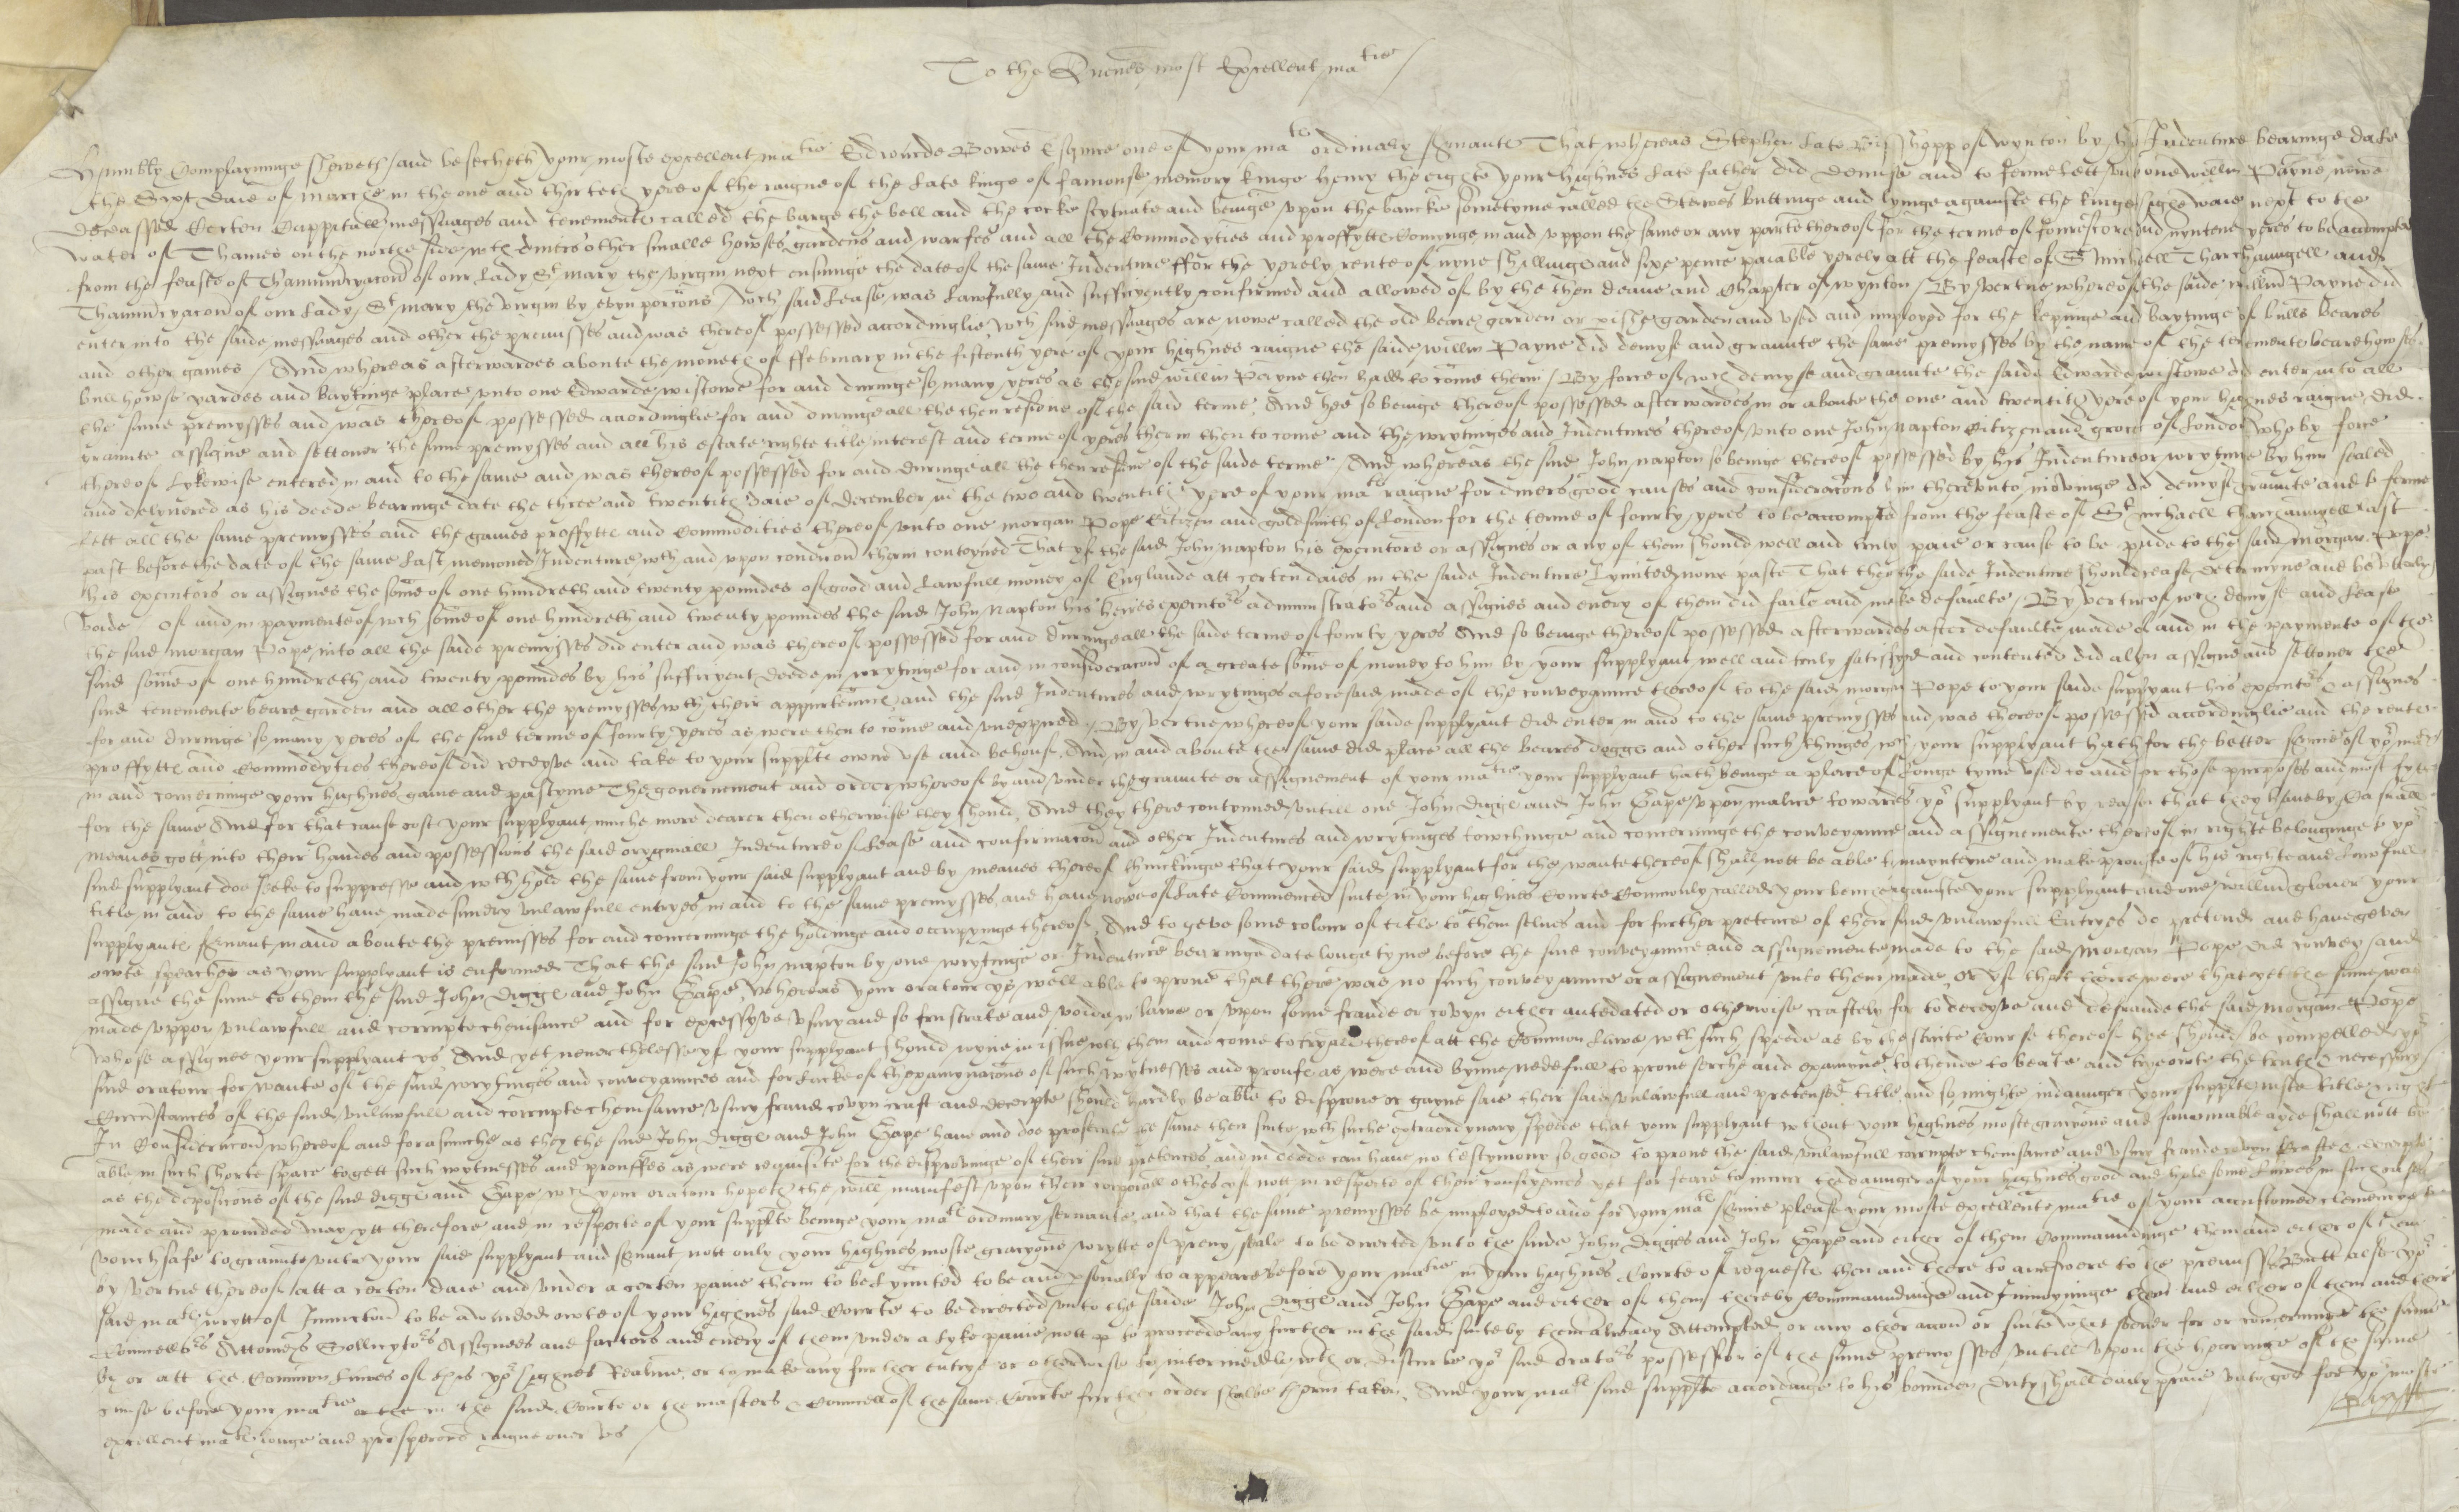 To the Quenes most Excellent ma<sup>tie</sup>
Humbly Complayninge sheweth and besecheth your moste excellent ma<sup>tie</sup> Edwarde Bowes Esquire one of your ma<sup>ts</sup> ordinary servantes That whereas Stephen late Bisshopp of wynton by his Indenture bearinge date
the Sixt daie of marche in the one and thirteth yere of the raigne of the late kinge of famouse memory kinge henry the eighte your highnes late father did demise and to ferme lett unto one willm Payne nowe
deceassed Certen Cappitall messuages and tenementes called the barge the bell and the cocke scytuate and beinge upon the bancke sometyme called the Stewes buttinge and lyinge againste the kinges highe waie next to the
water of Thames on the northe side wth divers other smalle howses gardens and warfes and all the Commodyties and proffyttes Comynge in and uppon the same or any parte thereof for the terme of fourescore and nyntene yeres to be accompted
from the feaste of Thannuncyacon of our Lady St mary the virgin next ensuinge the date of the same Indenture ffor the yerely rente of nyne shillinges and sixe pence paiable yerely att the feastes of St michaell Tharchaungell and
Thannuncyacon of our Lady St mary the virgin by evyn porcons / wch said Lease was Lawfully and sufficyently confirmed and allowed of by the then deane and Chapter of wynton / By vertue whereof the saide willm Payne did
enter into the saide messuages and other the premisses and was thereof possessed accordinglie wch said messuages are nowe called the old beare garden or garden and used and imployed for the kepinge and baytinge of bulls beares
and other games / And whereas afterwardes aboute the moneth of ffebruary in the fiftenth yere of your highnes raigne the saide willm Payne did demyse and graunte the same premysses by the name of the tenemente bearehowses
bull howse yardes and baytinge place unto one Edwarde wistowe for and duringe so many yeres as the said willm Payne then hadd to come therin / By force of wch demyse and graunte the saide Edwarde wistowe did enter into all
the same premysses and was thereof possessed accordinglie for and duringe all the then residue of the said terme And hee so beinge thereof possessed afterwardes in or aboute the one and twentith yere of your highnes raigne did
graunte assigne and sett over the same premysses and all his estate righte title interest and terme of yeres therin then to come and the wrytinges and Indentures thereof unto one John Napton Citizen and grocer of London who by force
thereof lykewise entered in and to the same and was thereof possessed for and duringe all the then residue of the saide terme And whereas the said John Napton so beinge thereof possessed by his Indenture or wrytinge by him sealed
and delyvered as his deede bearinge date the three and twentith daie of december in the two and twentith yere of your ma<sup>ts</sup> raigne for divers good causes and consideracons him therevnto movinge did demyse graunte and to ferme
lett all the same premysses and the games proffyttes and Commodities thereof unto one morgan Pope Citizen and goldsmith of London for the terme of fourty yeres to be accompted from the feaste of St michaell tharchaungell last
past before the date of the same last mencioned Indenture wth and upon condicion therin conteyned That yf the said John Napton his executors or assignes or any of them should well and truly paie or cause to be paide to the said morgan Pope
his executors or assignes the some of one hundreth and twenty poundes of good and lawfull money of Englande att certen daies in the saide Indenture Lymited nowe paste That then the saide Indenture should cease determyne and be utterly
voide Of and in paymente of wch some of one hundreth and twenty poundes the said John Napton his heires executo<sup>rs</sup> administrato<sup>rs</sup> and assignes and every of them did faile and make defaulte / By vertue of wch demyse and Lease
the said morgan Pope into all the saide premysses did enter and was thereof possessed for and duringe all the saide terme of fourty yeres And so beinge thereof possessed afterwardes after defaulte made of and in the paymente of the
said some of one hundreth and twenty poundes by his sufficyent deede in wrytinge for and in consideracon of a greate some of money to him by your supplyant well and truly satisfyed and contented did alyn assigne and sett over the
said tenemente beare garden and all other the premysses wth their appurtenaunces and the said Indentures and wrytinges aforesaid made of the conveyaunce thereof to the said morgan Pope to your saide supplyant his executo<sup>rs</sup> & assignes
for and duringe so many yeres of the said terme of fourty yeres as were then to come and unexpired / By vertue whereof your saide supplyant did enter in and to the same premysses and was thereof possessed accordinglie and the rentes
proffyttes and Commodyties thereof did receyve and take to your supplts owne use and behoufe And in and aboute the same did place all the beares dogges and other such thinges wch your supplyant hath for the better service of yo<sup>r</sup> ma<sup>tie</sup>
in and concerninge your highnes game and pastyme The governement and order whereof by and under the graunte or assignement of your ma<sup>tie</sup> your supplyant hath beinge a place of longe tyme used to and for those purposes and most fytt
for the same And for that cause cost your supplyant muche more dearer then otherwise they should And they there contynued untill one John Digges and John Cape upon malice towardes yo<sup>r</sup> supplyant by reason that they have by Casuall
meanes gott into their handes and possessions the said oryginall Indenture of Lease and confirmacon and other Indentures and wrytinges towchinge and concerninge the conveyaunce and assignemente thereof in righte belonginge to yo<sup>r</sup>
said supplyant doe seke to suppresse and wthhold the same from your said supplyant and by meanes thereof thinckinge that your said supplyant for the wante thereof shall nott be able to maynteyne and make proufe of his righte and Lawfull
title in and to the same have made sundry unlawfull entryes in and to the same premysses and have nowe of late Commenced suite in your highnes Courte Commonly called your benche againste your supplyant and one willm glover your
supplyantes servant in and aboute the premisses for and concerninge the holdinge and occupyinge thereof And to geve some colour of title to them selves and for further pretence of their said unlawfull Entryes do pretend and have geven
owte speaches as your supplyant is enformed That the said John Napton by one wrytinge or Indenture bearinge date longe tyme before the said conveyaunce and assignemente made to the said Morgan Pope did convey and
assigne the same to them the said John Digges and John Cape, Whereas your oratour ys well able to prove that there was no such conveyaunce or assignement unto them made Or yf that there were that yet the same was
made uppon unlawfull and corrupte chevisance and for excessyve usury and so frustrate and voide in lawe or upon some fraude or covyn either antedated or otherwise craftely for to deceyve and defraude the said Morgan Pope
whose assignee your supplyant ys And yet neverthelesse yf your supplyant should joyne in issue wth them and come to tryall thereof att the Common Lawe wth such speede as by the straite Course thereof hee should be compelled yo<sup>r</sup>
said oratour for wante of the said wrytinges and conveyaunces and for Lacke of thexamynacons of such wytnesses and proufe as were and bynne nedefull to prove serche and examyne to thende to beate and trye owte the truth & necessary
Circumstances of the said unlawfull and corrupte chevisance usury fraud covyn craft and deceipte should hardly be able to disprove or gayne saie their said unlawfull and pretensed title and so mighte indaunger your supplts juste title right
In Consideracon whereof and forasmuche as they the said John Digges and John Cape have and doe prosecute the same their suite wth suche extraordynary speede that your supplyant wthout your highnes moste gracyous and favourable ayde shall nott be
able in such shorte space to gett such wytnesses and prouffes as were requisite for the disprovinge of their said pretences and in deede can have no testymony so good to prove the said unlawfull corrupte chevisance and usury fraude covyn Crafte & deceipte
as the deposicons of the said digges and Cape wch your oratour hopeth they will manifest upon their corporall othes yf nott in respecte of their consciences yet for feare to incurr the daunger of your highnes good and holesome Lawes in such cases
made and provided may ytt therefore and in respecte of your supplte beinge your ma<sup>ts</sup> ordinary servante and that the same premysses be imployed to and for your ma<sup>ts</sup> service please your moste excellente ma<sup>tie</sup> of your accustomed clemencye to
vouchsafe to graunte unto your said supplyant and servant nott only your highnes moste gracyous wrytte of prevy seale to be directed unto the saide John Digges and John Cape and either of them Commaundinge them and either of them
by vertue thereof att a certen daie and under a certen paine therin to be Lymited to be and personally to appeare before your ma<sup>tie</sup> in your highnes Courte of requestes then and there to answere to the premisses Butt also yo<sup>r</sup>
said ma<sup>ts</sup> wrytt of Iniunction to be awarded owte of your highnes said Courte to be directed unto the saide John Digges and John Cape and either of them thereby Commaundinge and Iniuoyninge them and either of them and their
Councello<sup>rs</sup> Attorneys Sollicyto<sup>rs</sup> Assignees and factors and every of them under a Lyke paine nott to proceede any further in the said suite by them already Attempted or any other accon or suite what soever for or concerninge the same
by or att the Common Lawes of this yo<sup>r</sup> highnes Realme or to make any further entrye or otherwise to intermeddle wth or disturbe yo<sup>r</sup> said orato<sup>rs</sup> possession of the same premysses untill upon the hearinge of the same
cause before your ma<sup>tie</sup> in the said Courte or the masters & Councell of the same Courte further order shalbe therin taken. And your ma<sup>ts</sup> said supplte accordinge to his bounden duty shall dayly praie unto god for yo<sup>r</sup> moste
excellent ma<sup>ts</sup> longe and prosperous raigne over us